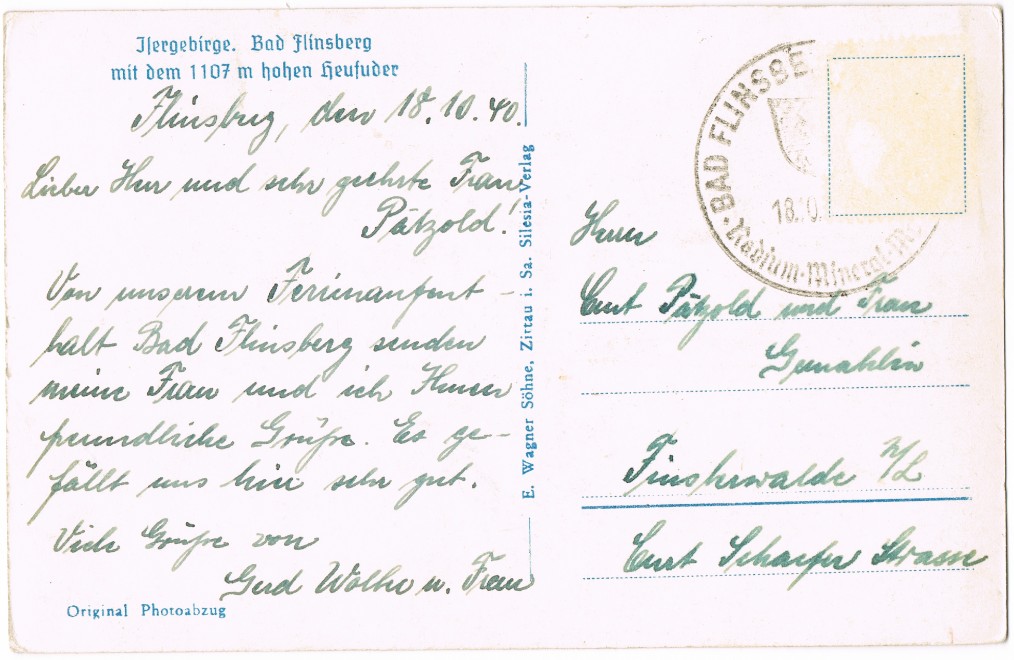 Isergebirge. Bad Flinsberg
mit dem 1107 m hohen Heufuder
Flinsbrg, den 18.10.40.
Lieber Herr und sehr geehrte Frau
Pätzold!
Von unserem Ferienaufent-
halt Bad Flinsberg senden
meine Frau und ich Ihnen
freundliche Grüße. Es ge-
fällt uns hier sehr gut.
Viele Grüße von
Gerd Wolke u. Frau
Original Photoabzug
E. Wagner Söhne, Zittau i. Sa. Silesia-Verlag
BAD FLINSBE
18.10.
Radium-Mineral-Mo
Herrn
Curt Pätzold und Frau
Gemahlin
Finsterwalde N/L
Curt Schaefer Strasse